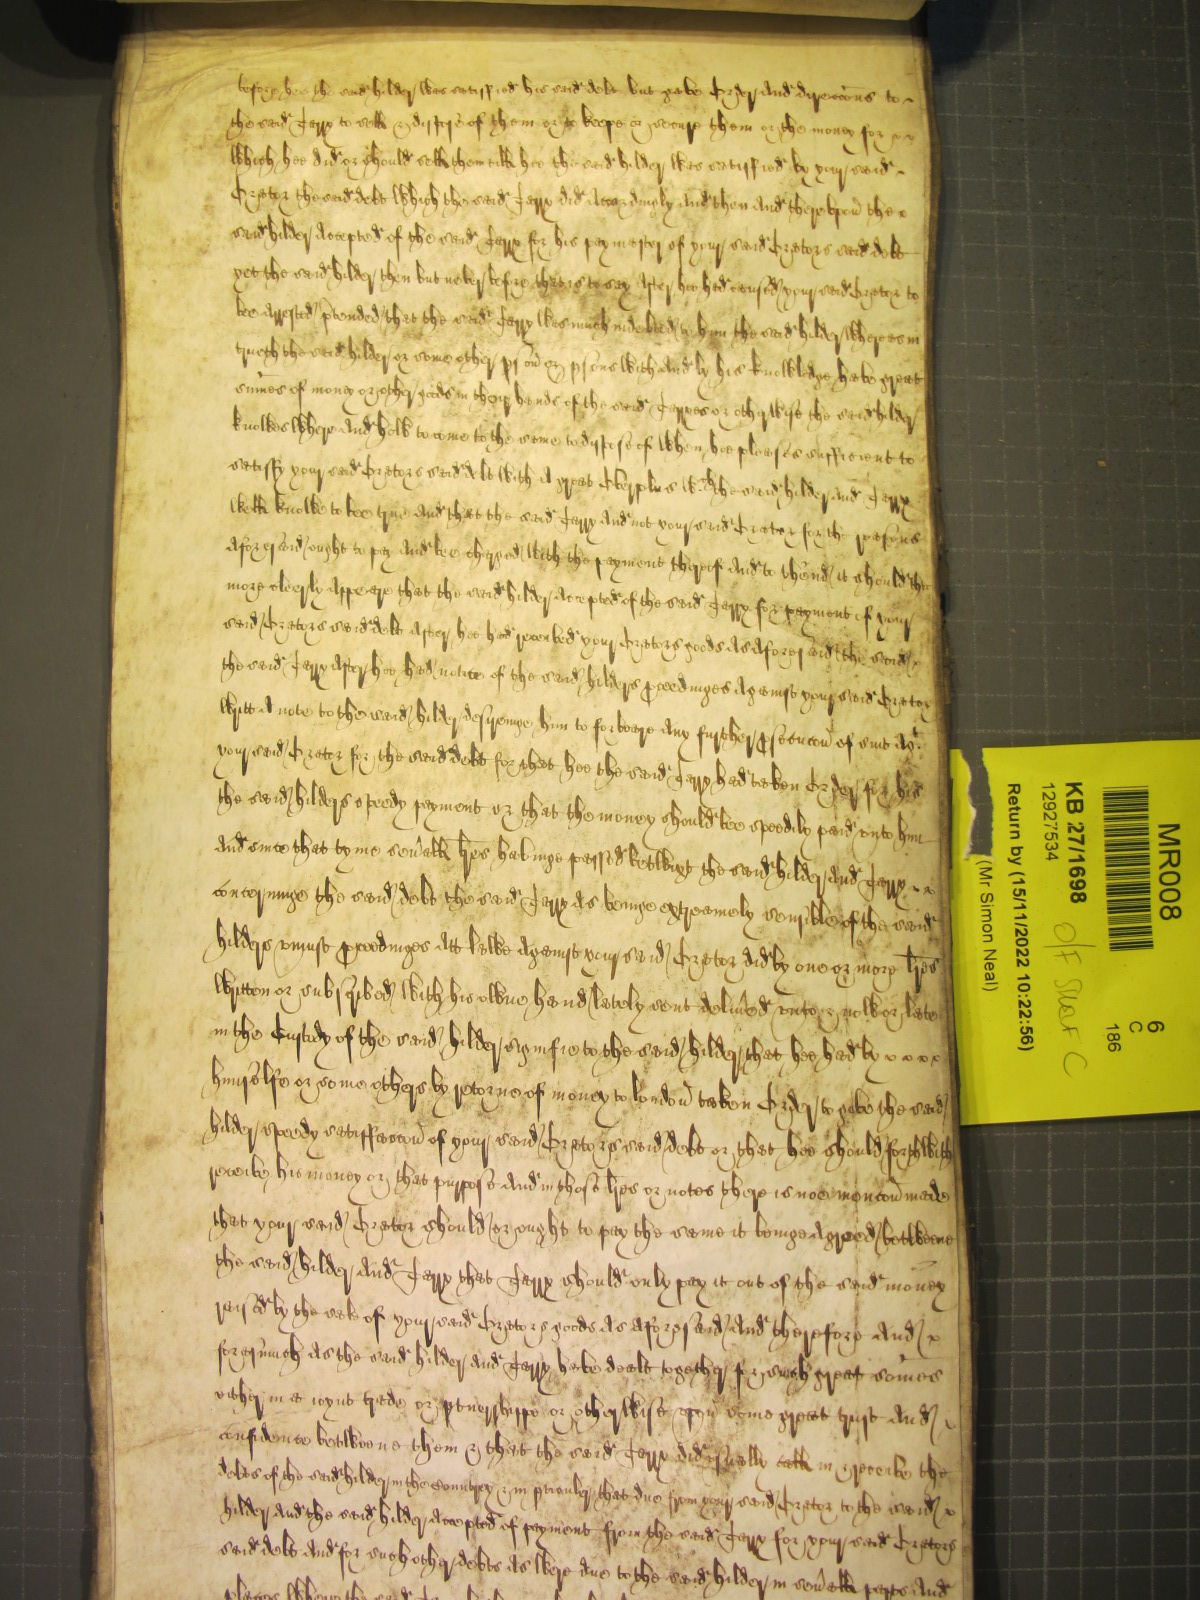 before hee the said Hilder was satisfied his said debt but gave Order And direccons to
the said Jarry to sell & dispose of them or to keepe or secure them or the money for
Which hee did or should sell them till hee the said hilder was satisfied by your said
Orator the said debt Which the said Jarry did Accordingly And then And therevpon the
said hilder Accepted of the said Jarry for his paymaster of your said Orators said debt
yet the said hilder then but never before that is to say After hee had caused your said Orator to
bee Arrested ptended that the said Jarry was much indebted to him the said hilder Whereas in
trueth the said hilder or some other pson or psons With And by his knowledge have great
sumes of money or other goods in their hands of the said Jarryes or otherwise the said hilder
knowes Where And how to come to the same to dispose of When hee pleases sufficient to
satisfy your said Orators said debt With A great Overplus wch the said hilder And Jarry
well knowe to bee true And that the said Jarry And not your said Orator for the reasons
Aforesaid ought to pay And bee charged With the payment thereof And to thend it should the
more cleerly Appeare that the said hilder Accepted of the said Jarry for payment of your
said Orators said debt After hee had received your Orators goods As Aforesaid the said
the said Jarry After hee had notice of the said hilders pceedinges Against your said Orator
Writt A note to the said hilder desireinge him to forbeare Any further psecucon of suit Agt
your said Orator for the said debt for that hee the said Jarry had taken Order for his
the said hilders speedy payment or that the money should bee speedily paid vnto him
And since that tyme sevall lres havinge passed betwixt the said hilder And Jarry
concerninge the said debt the said Jarry As beinge extreamely sensible of the said
hilders vniust pceedinges Att lawe Against your said Orator did by one or more lres
Written or subscribed With his owne hand lately sent delived vnto & now or late
in the Custody of the said hilder signifie to the said hilder that hee had by
himselfe or some others by retorne of money to london taken Order to give the said
hilder speedy satisfaccon of your said Orators said debt or that hee should forthwith
receive his money or that purpose And in those lres or notes there is noe mencon made
that your said Orator should or ought to pay the same it beinge Agreed betweene
the said hilder And Jarry that Jarry should only pay it out of the said money
raised by the sale of your said Orators goods As Aforesaid And therefore And
forasmuch As the said hilder And Jarry have dealt together for such great somes
either in a ioynt trade or ptnershippe or otherwise vpon some great trust And
confidence betweene them & that the said Jarry did vsually call in & receive the
debts of the said hilder in the countrey & in pticuler that due from your said Orator to the said
hilder And the said hilder Accepted of payment from the said Jarry for your said Orators
said debt And for such other debts As were due to the said hilder in sevall parts And
places Where the said
MR008
KB 27/1698
12927534
Return by (15/11/2022 10:22:56)
(Mr Simon Neal)
6
C
186